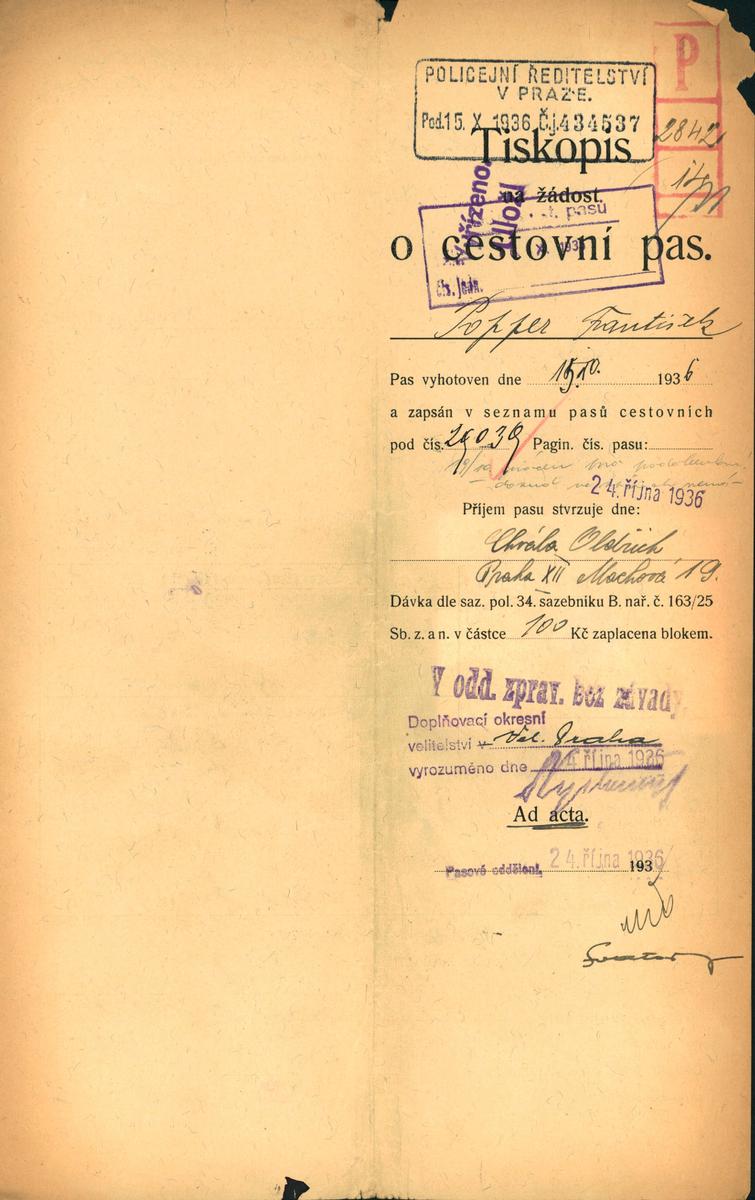 POLICEJNÍ ŘEDITELSTVÍ
V PRAZE.
Pod. 15. X. 1936 Č.j. 434537
P
2842
Tiskopis
na žádost
o cestovní pas.
Vyřízeno.
Uloží
pasů
čís. jedn.
Popper František
Pas vyhotoven dne 15/10. 1936
a zapsán v seznamu pasů cestovních
pod čís. 29039 Pagin. čís. pasu:
24. října 1936
Příjem pasu stvrzuje dne:
Chvála Oldřich
Praha XII Machová 19.
Dávka dle saz. pol. 34. sazebníku B. nař. č. 163/25
Sb. z. a n. v částce 100 Kč zaplacena blokem.
V odd. zprav. bez závady.
Doplňovací okresní
velitelství v Vel. Praha
vyrozuměno dne 24. října 1936
Ad acta.
Pasové oddělení, 24. října 1936 193